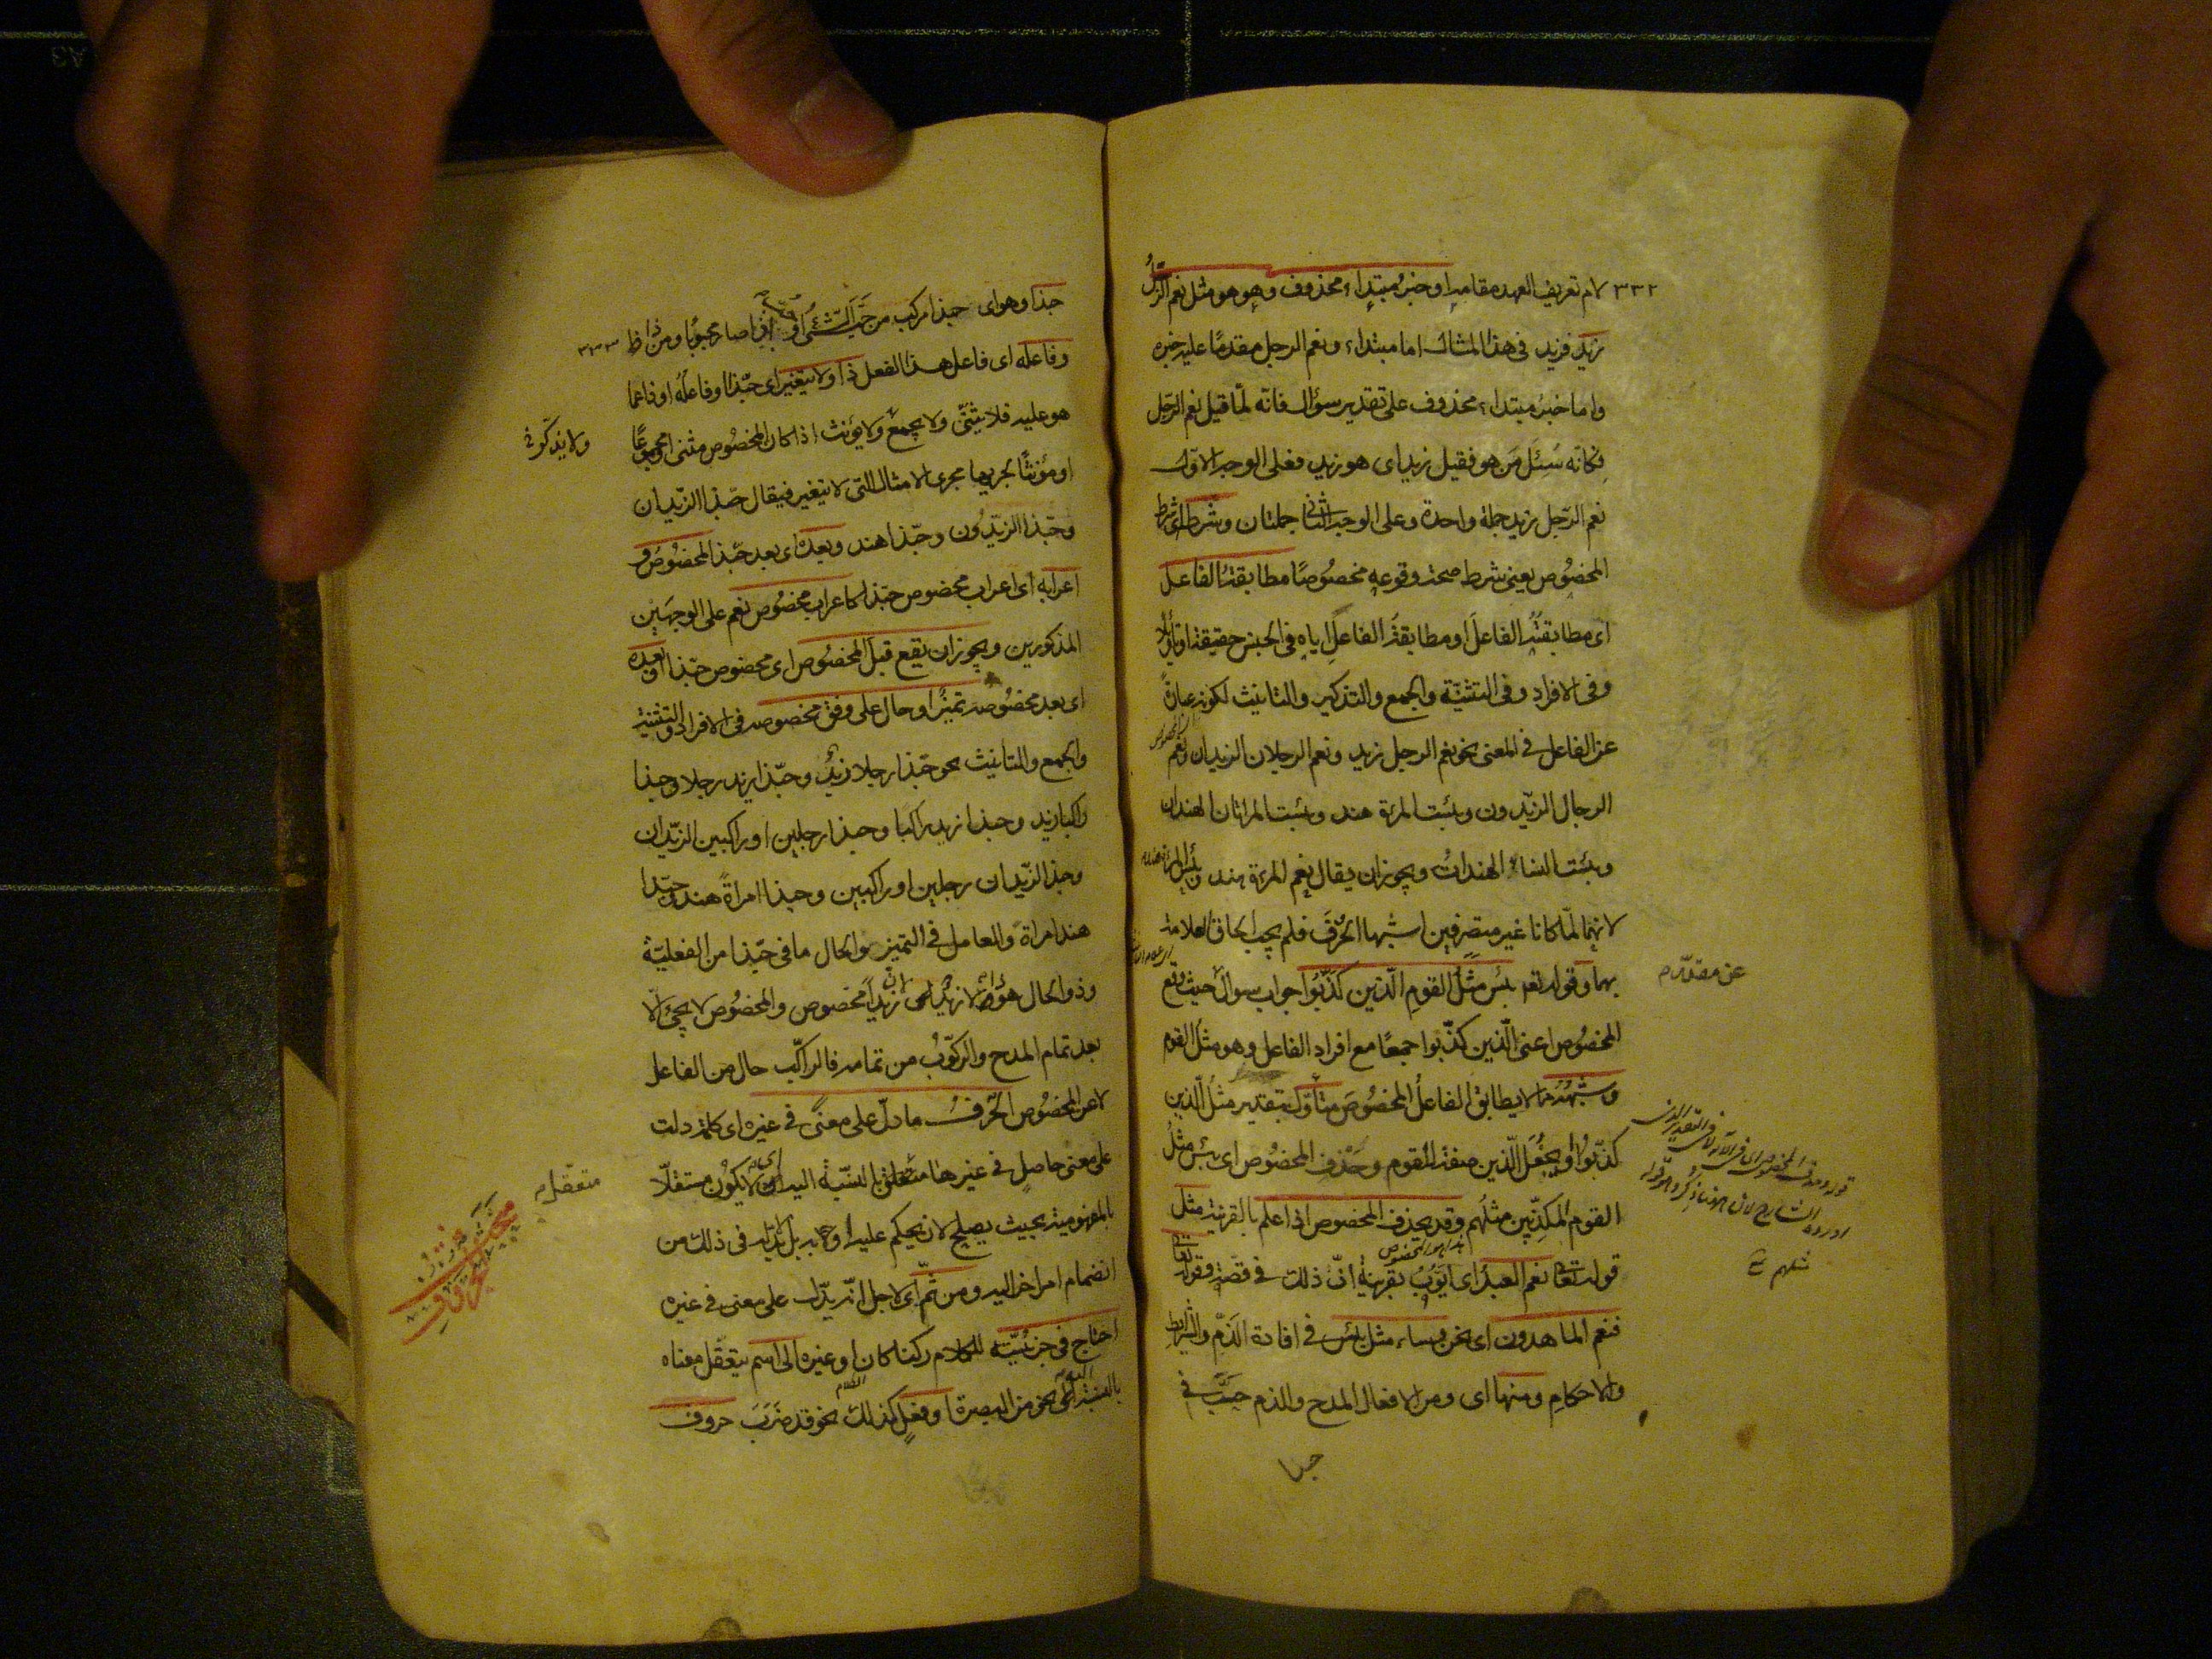 ٣٣٢
لام تعريف العهد مقامه او خبر مبتداء محذوف وهو هو مثل نعم الرّجل
زيد فزيد فى هذا المثال اما مبتداء ونعم الرجل مقدمًا عليه خبره
واما خبر مبتداء محذوف على تقدير سؤال فانه لمّا قيل نعم الرّجل
فكانّه سُئِل مَن هو فقيل زيد اى هو زيد فعلى الوجه الاوّل
نعم الرّجل زيد جملة واحدة وعلى الوجه الثانى جملتان وشرطه اى شرط
المخصُوص يعنى شرط صحة وقوعه مخصُوصًا مطابقتهُ الفاعل
اى مطابقتُه الفاعلَ او مطابقةُ الفاعلِ اياه فى الجنس حقيقة او تأويلًا
وفى الافراد وفى التثنيّة والجمع والتذكير والتانيث لكونه عبارةً
عن الفاعل فى المعنى نحو نعم الرجل زيد ونعم الرجلان الزيدان ونعم
الرجال الزيّدون وبئست المرءة هند وبئست المرأتان الهندان
وبئست النساء الهنداتُ ويجوز ان يقال نعم المرءة هند وبئس المرءة هند
لانهما لمّا كانا غير متصرفين اشبها الحَرفَ فلم يجب الحاق العلامة
بهما وقوله تع بئس مثلُ القوم الّذين كذّبُوا جواب سوال حيث وقع
المخصُوص اعنى الّذين كذّبوا جمعًا مع افراد الفاعل وهو مثلُ القوم
وشبهُه مما لا يطابق الفاعلُ المخصُوصَ متأوّل بتقدير مثلُ الّذين
كذّبُوا او بجعْل الّذين صفة للقوم وحَذْفِ المخصُوص اى بئس مثلُ
القوم المكذّبين مثلُهم وقد يحذف المخصُوص اذا علم بالقرينة مثل
قوله تعالى نعم العبدُ اى ايّوبُ بقرينة انّ ذلك فى قصّته وقوله تعالى
فنعم الماهدون اى نحن وساء مثل بئس فى افادة الذّم والشرايط
والاحكام ومنها اى ومن الافعال المدح والذم حَبَّ فى
عن مقدّم
مثلهم
حبذا
٣٣٣
حبّذا وهو اى حبذا مركب من حَبَّ الشّئُ اذا صار محبوبًا ومن ذا
وفاعله اى فاعل هذا الفعل ذا ولا يتغير اى حبّذا او فاعلُه او ذا عمّا
هو عليه فلا يثنّى ولا يجمع ولا يؤنث اذا كان المخصُوص مثنى او مجموعًا
او مؤنثًا لجريها مجرى الامثال التى لا تتغير فيقال حبّذا الزيّدان
وحبّذا الزيّدُون وحبّذا هند وبعده اى بعد حبّذا المخصُوص و
اعرابه اى اعراب مخصوص حبّذا كاعراب مخصُوص نعم على الوجهَين
المذكورين ويجوز ان يقع قبل المخصُوص اى مخصوص حبّذا او بعده
اى بعد مخصُوصه تميزًا او حال على وفق مخصوصه فى الافراد والتثنية
والجمع والتانيث نحو حبّذا رجلا زيدٌ وحبّذا زيد رجلا وحبذا
راكبا زيد وحبذا زيد راكبا وحبذا رجلين او راكبين الزيّدان
وحبذا الزيّدان رجلين او راكبين وحبذا امراةً هند وحبّذا
هند امراة والعامل فى التميز والحال ما فى حبّذا من الفعليّة
وذو الحال هو ذا لا زيدٌ لان زيدًا مخصوص والمخصُوص لا يجئ الّا
بعد تمام المدح والركوبُ من تمامه فالراكب حال من الفاعل
لا عن المخصُوص الحَرفُ ما دلّ على معنًى فى غيره اى كلمة دلت
على معنى حاصل فى غيرها متعقل بالنسبة اليه اى لا يكُون مستقلّا
بالمفهومية بحيث يصلح لان يحكم عليه او به بل لا بدّ له فى ذلك من
انضمام امر اخر اليه ومن ثمّ اى لاجل انّه يدّل على معنى فى غيره
احتاج فى جزئيّته للكلام ركنا كان او غيره الى اسم يتعقّل معناه
بالنسبة اليه نحو من البصرة او فعل كذلك نحو قد ضَرَبَ حروف
ولا يذكر فى
متعقل
مبحث